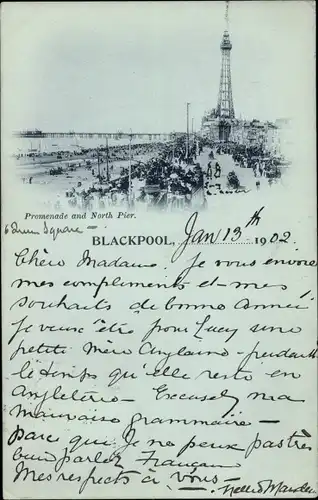 Promenade and North Pier.
6 Queen Square —
BLACKPOOL, Jan 13th 1902.
Chere Madame. Je vous envoie
mes compliments et mes
souhaits de bonne Anneé
Je veux être pour Lucy une
petite Mère Anglaise – pendant
le temps qu'elle reste en
Angleterre – Excusez ma
mauvaise grammaire –
parc que Je ne peux pas très
bien parler Français
Mes respects à vous –